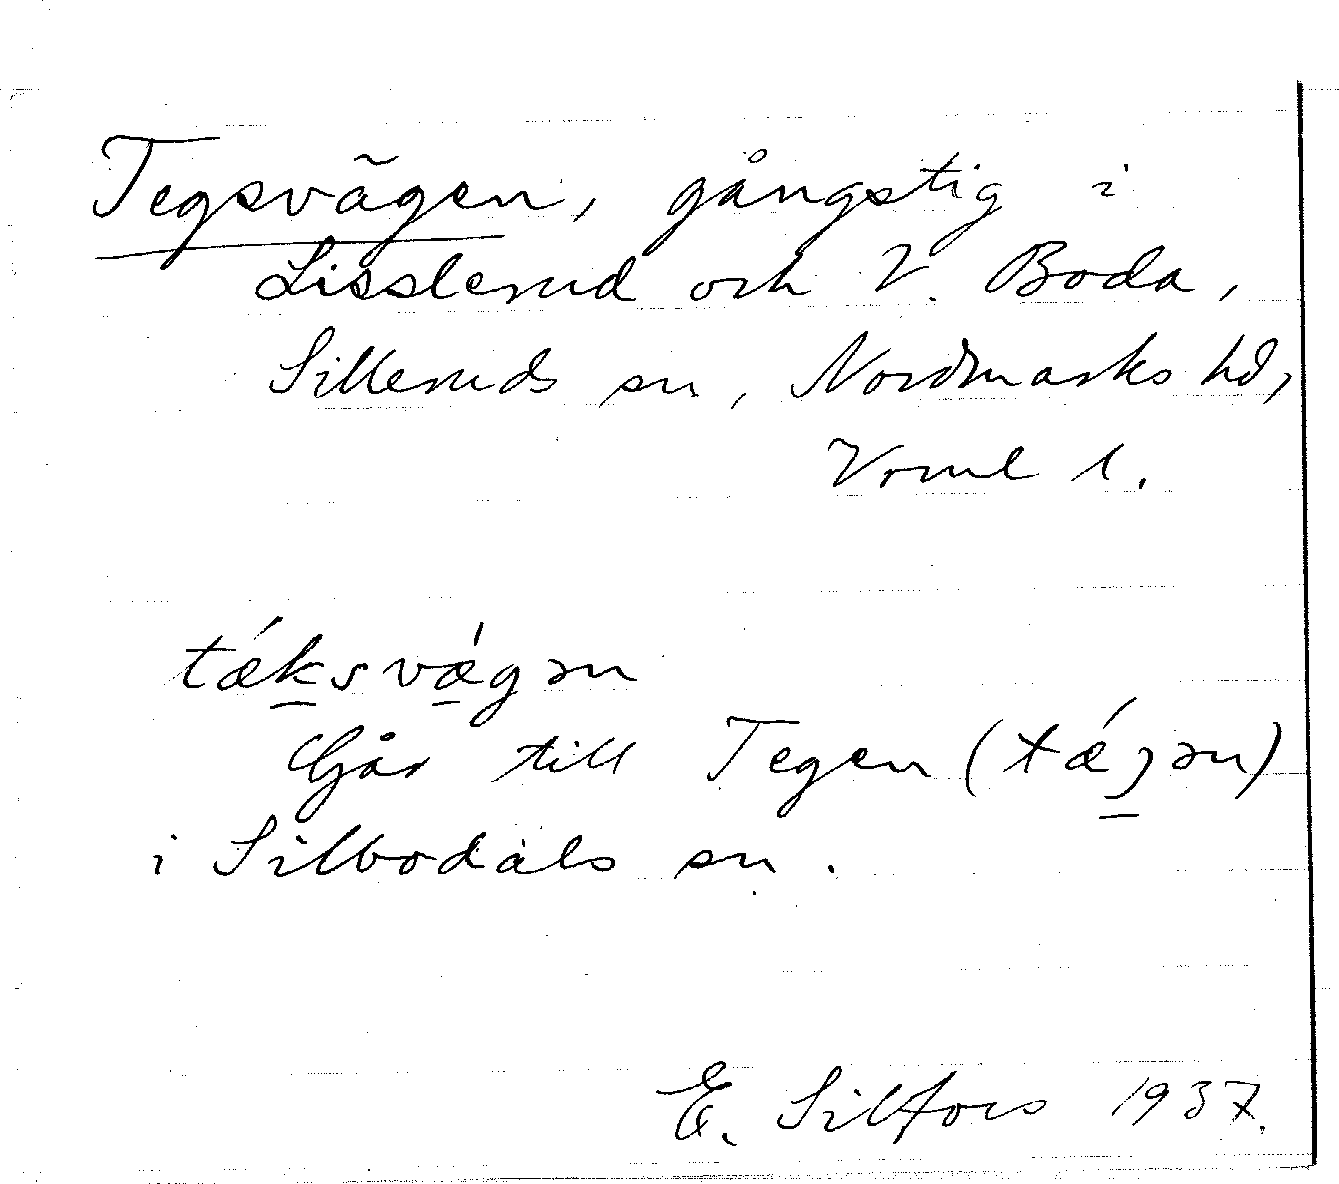 Tegsvägen, gångstig i
Lisslerud och V. Boda,
Silleruds sn, Nordmarks hd,
Vrml l.
tǽk̲svǽ̲gən
Går till Tegen (tǽɟ̲ən)
i Silbodals sn.
E. Silfors 1937.